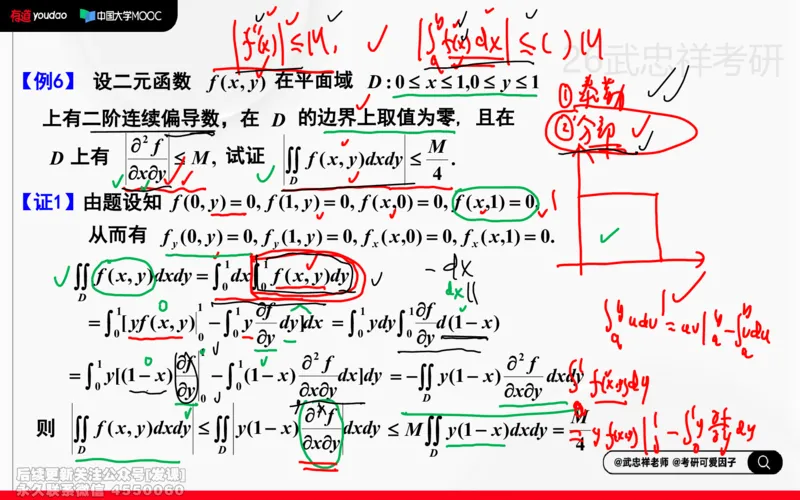 有道 youdao 中国大学MOOC
|f''(x)| ≤ M, |∫_a^b f(x)dx| ≤ ( )M
26武忠祥考研
【例6】 设二元函数 f(x,y) 在平面域 D:0≤x≤1,0≤y≤1
① 泰勒
上有二阶连续偏导数，在 D 的边界上取值为零, 且在
② 分部
D 上有 |∂²f/∂x∂y| ≤ M, 试证 |∬_D f(x,y)dxdy| ≤ M/4.
【证1】由题设知 f(0,y)=0, f(1,y)=0, f(x,0)=0, f(x,1)=0.
从而有 f_y(0,y)=0, f_y(1,y)=0, f_x(x,0)=0, f_x(x,1)=0.
∬_D f(x,y)dxdy = ∫_0^1 dx ∫_0^1 f(x,y)dy
-dx
dx
= ∫_0^1 [yf(x,y)|_0^1 - ∫_0^1 y ∂f/∂y dy]dx = ∫_0^1 ydy ∫_0^1 ∂f/∂y d(1-x)
∫_a^b udv = uv|_a^b - ∫_a^b vdu
= ∫_0^1 y[(1-x) ∂f/∂y |_0^1 - ∫_0^1 (1-x) ∂²f/∂x∂y dx]dy = -∬_D y(1-x) ∂²f/∂x∂y dxdy
∫_0^1 f(x,y)dy
则 |∬_D f(x,y)dxdy| ≤ ∬_D |y(1-x) ∂²f/∂x∂y| dxdy ≤ M∬_D y(1-x)dxdy = M/4
= y f(x,y)|_0^1 - ∫_0^1 y ∂f/∂y dy
@武忠祥老师 @考研可爱因子
后续更新关注公众号[发课]
永久联系微信 4550060